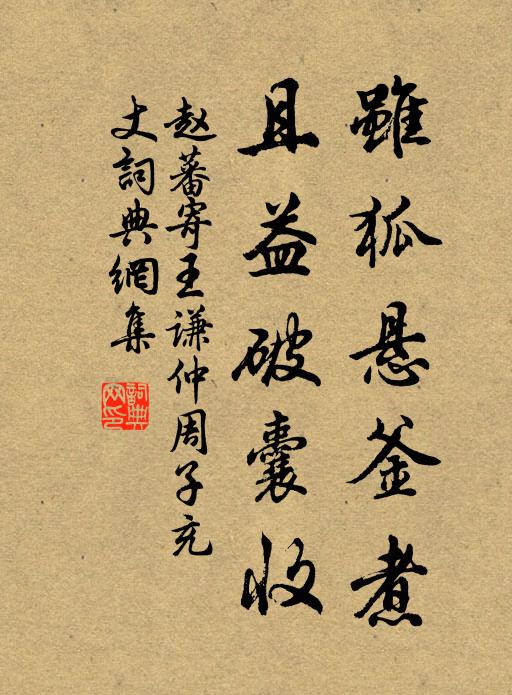 雖狐悬釜煮
且益破囊收
赵蕃寄王谦仲周子充
丈詞典網集
詞典網印